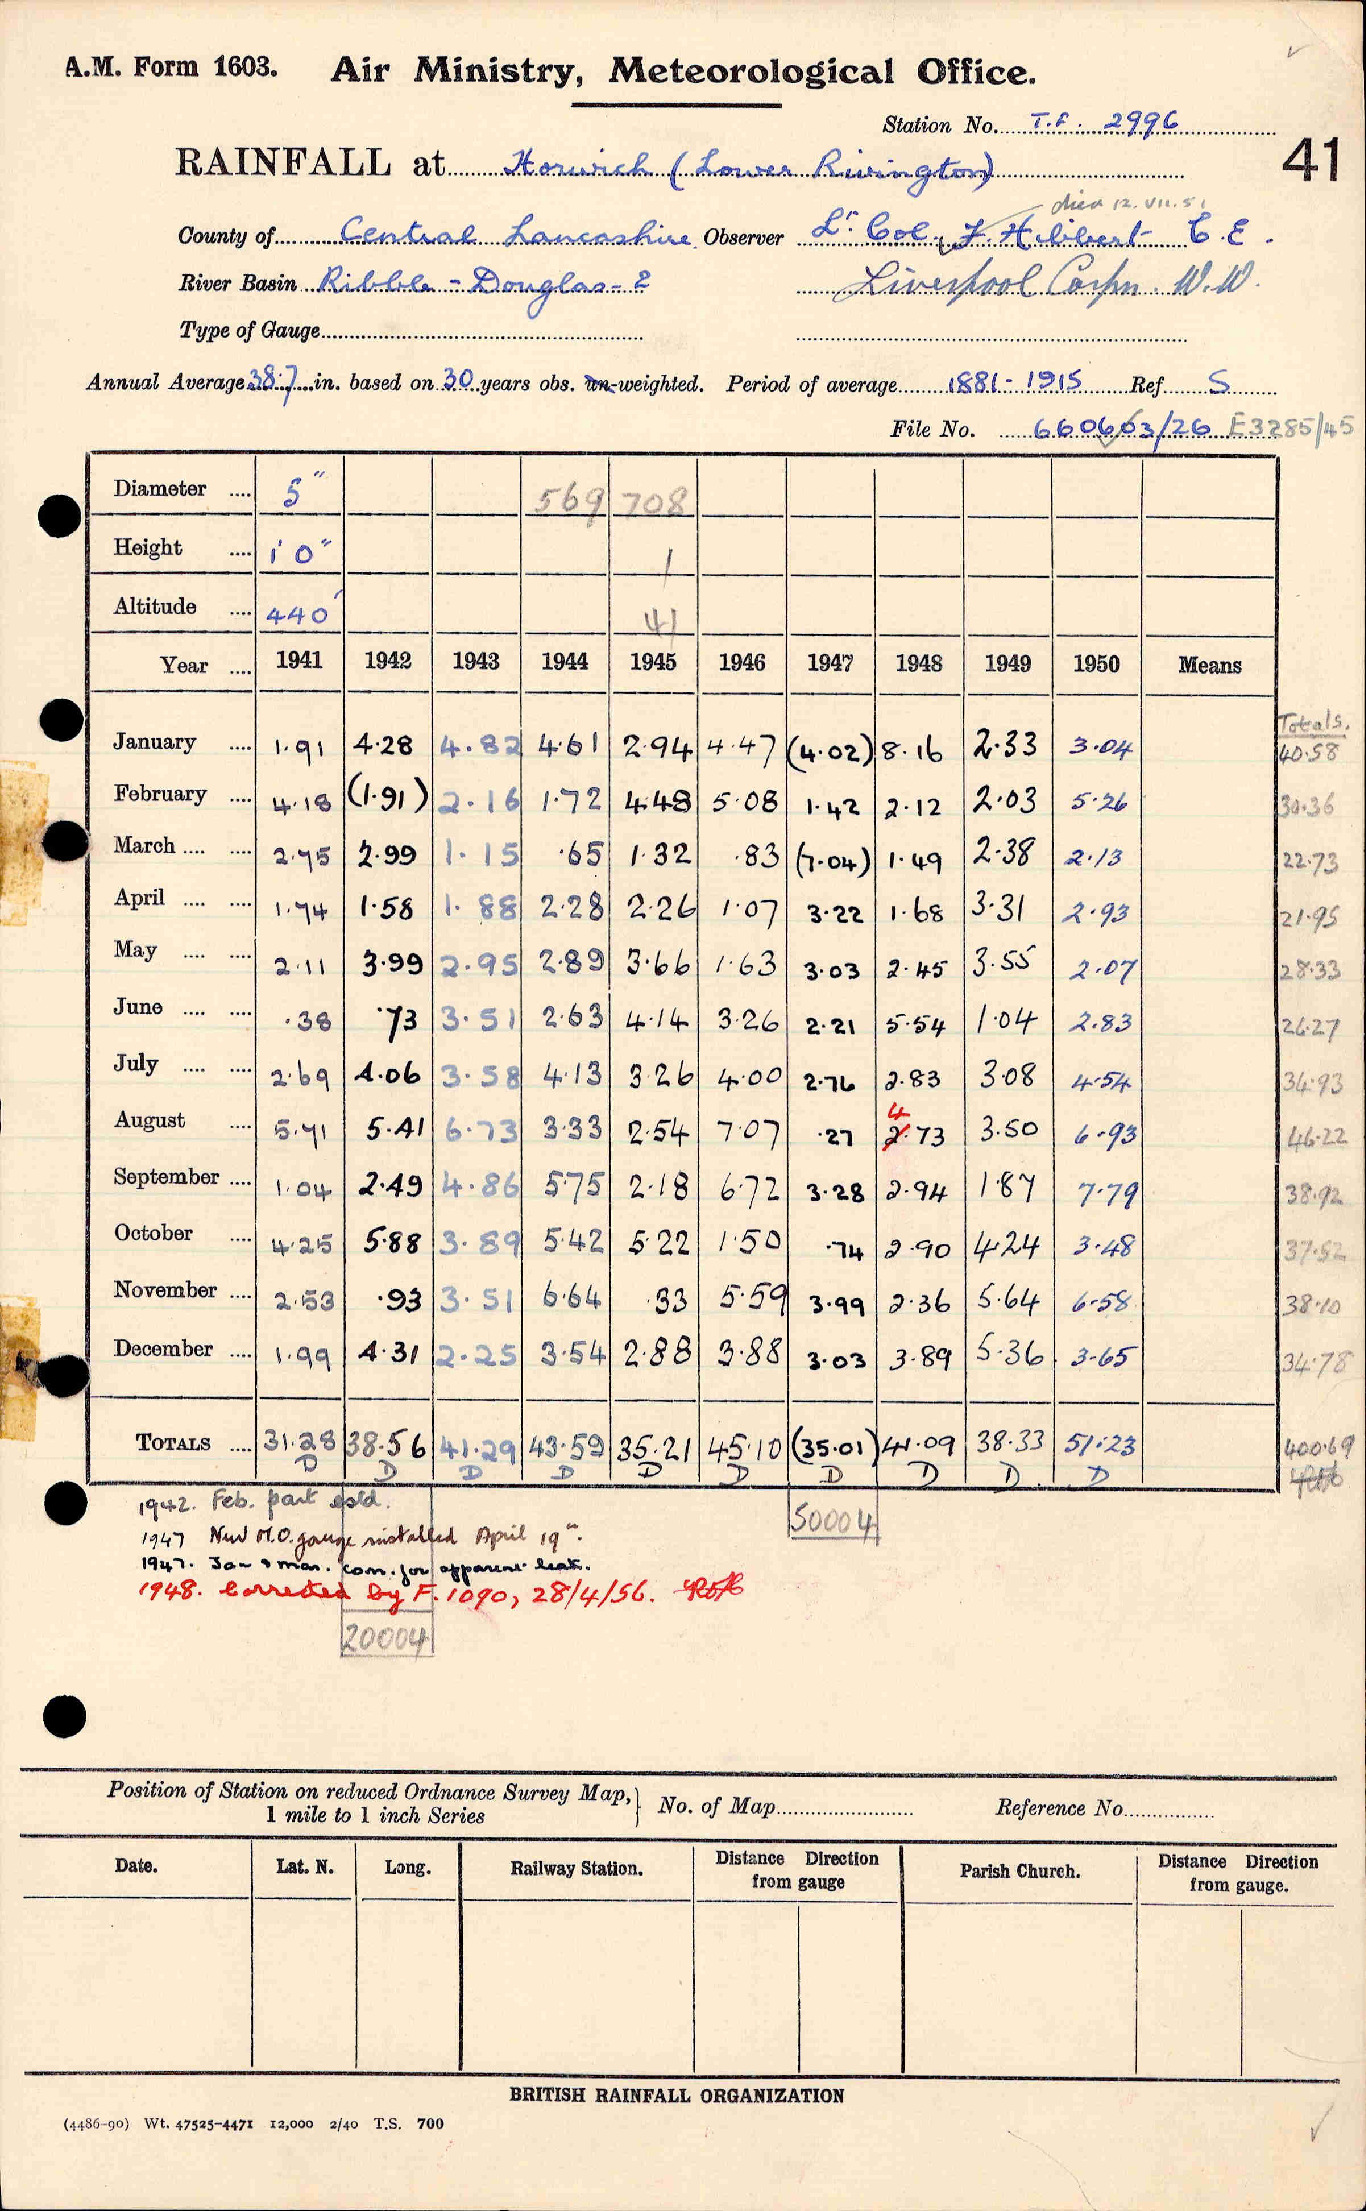 A.M. Form 1603. Air Ministry, Meteorological Office.
Station No. T.F. 2996
41
RAINFALL at Horwich (Lower Rivington)
died 12.VII.51
County of Central Lancashire Observer Lt. Col. F. Hibbert C.E.
River Basin Ribble - Douglas - 2 Liverpool Corpn. W.W.
Type of Gauge
Annual Average 38.7 in. based on 30 years obs. un-weighted. Period of average 1881-1915 Ref. S
File No. 660603/26 E3285/45
Diameter .... 5" 569 708
Height .... 1' 0" 1
Altitude .... 440' 41
Year .... 1941 1942 1943 1944 1945 1946 1947 1948 1949 1950 Means
Totals.
January .... 1.91 4.28 4.82 4.61 2.94 4.47 (4.02) 8.16 2.33 3.04 40.58
February .... 4.18 (1.91) 2.16 1.72 4.48 5.08 1.42 2.12 2.03 5.26 30.36
March .... .... 2.75 2.99 1.15 .65 1.32 .83 (7.04) 1.49 2.38 2.13 22.73
April .... .... 1.74 1.58 1.88 2.28 2.26 1.07 3.22 1.68 3.31 2.93 21.95
May .... .... 2.11 3.99 2.95 2.89 3.66 1.63 3.03 2.45 3.55 2.07 28.33
June .... .... .38 .73 3.51 2.63 4.14 3.26 2.21 5.54 1.04 2.83 26.27
July .... .... 2.69 4.06 3.58 4.13 3.26 4.00 2.76 2.83 3.08 4.54 34.93
4
August .... 5.71 5.41 6.73 3.33 2.54 7.07 .27 2.73 3.50 6.93 46.22
September .... 1.04 2.49 4.86 5.75 2.18 6.72 3.28 2.94 1.87 7.79 38.92
October .... 4.25 5.88 3.89 5.42 5.22 1.50 .74 2.90 4.24 3.48 37.52
November .... 2.53 .93 3.51 6.64 .33 5.59 3.99 2.36 5.64 6.58 38.10
December .... 1.99 4.31 2.25 3.54 2.88 3.88 3.03 3.89 5.36 3.65 34.78
TOTALS .... 31.28 38.56 41.29 43.59 35.21 45.10 (35.01) 41.09 38.33 51.23 400.69
D D D D D D D D D D
1942. Feb. part estd.
50004
1947 New M.O. gauge installed April 19th.
1947. Jan & Mar. corr. for apparent leak.
1948. Corrected by F.1090, 28/4/56.
20004
Position of Station on reduced Ordnance Survey Map, 1 mile to 1 inch Series } No. of Map Reference No.
Date. Lat. N. Long. Railway Station. Distance Direction from gauge Parish Church. Distance Direction from gauge.
BRITISH RAINFALL ORGANIZATION
(4486-90) Wt. 47525-4471 12,000 2/40 T.S. 700